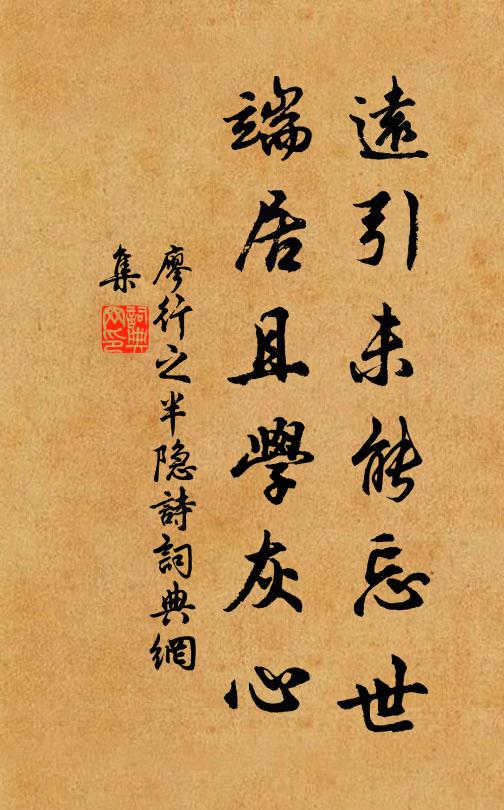 遠引未能忘世
端居且學灰心
廖行之半隐詩詞典網
集
詞典
网印